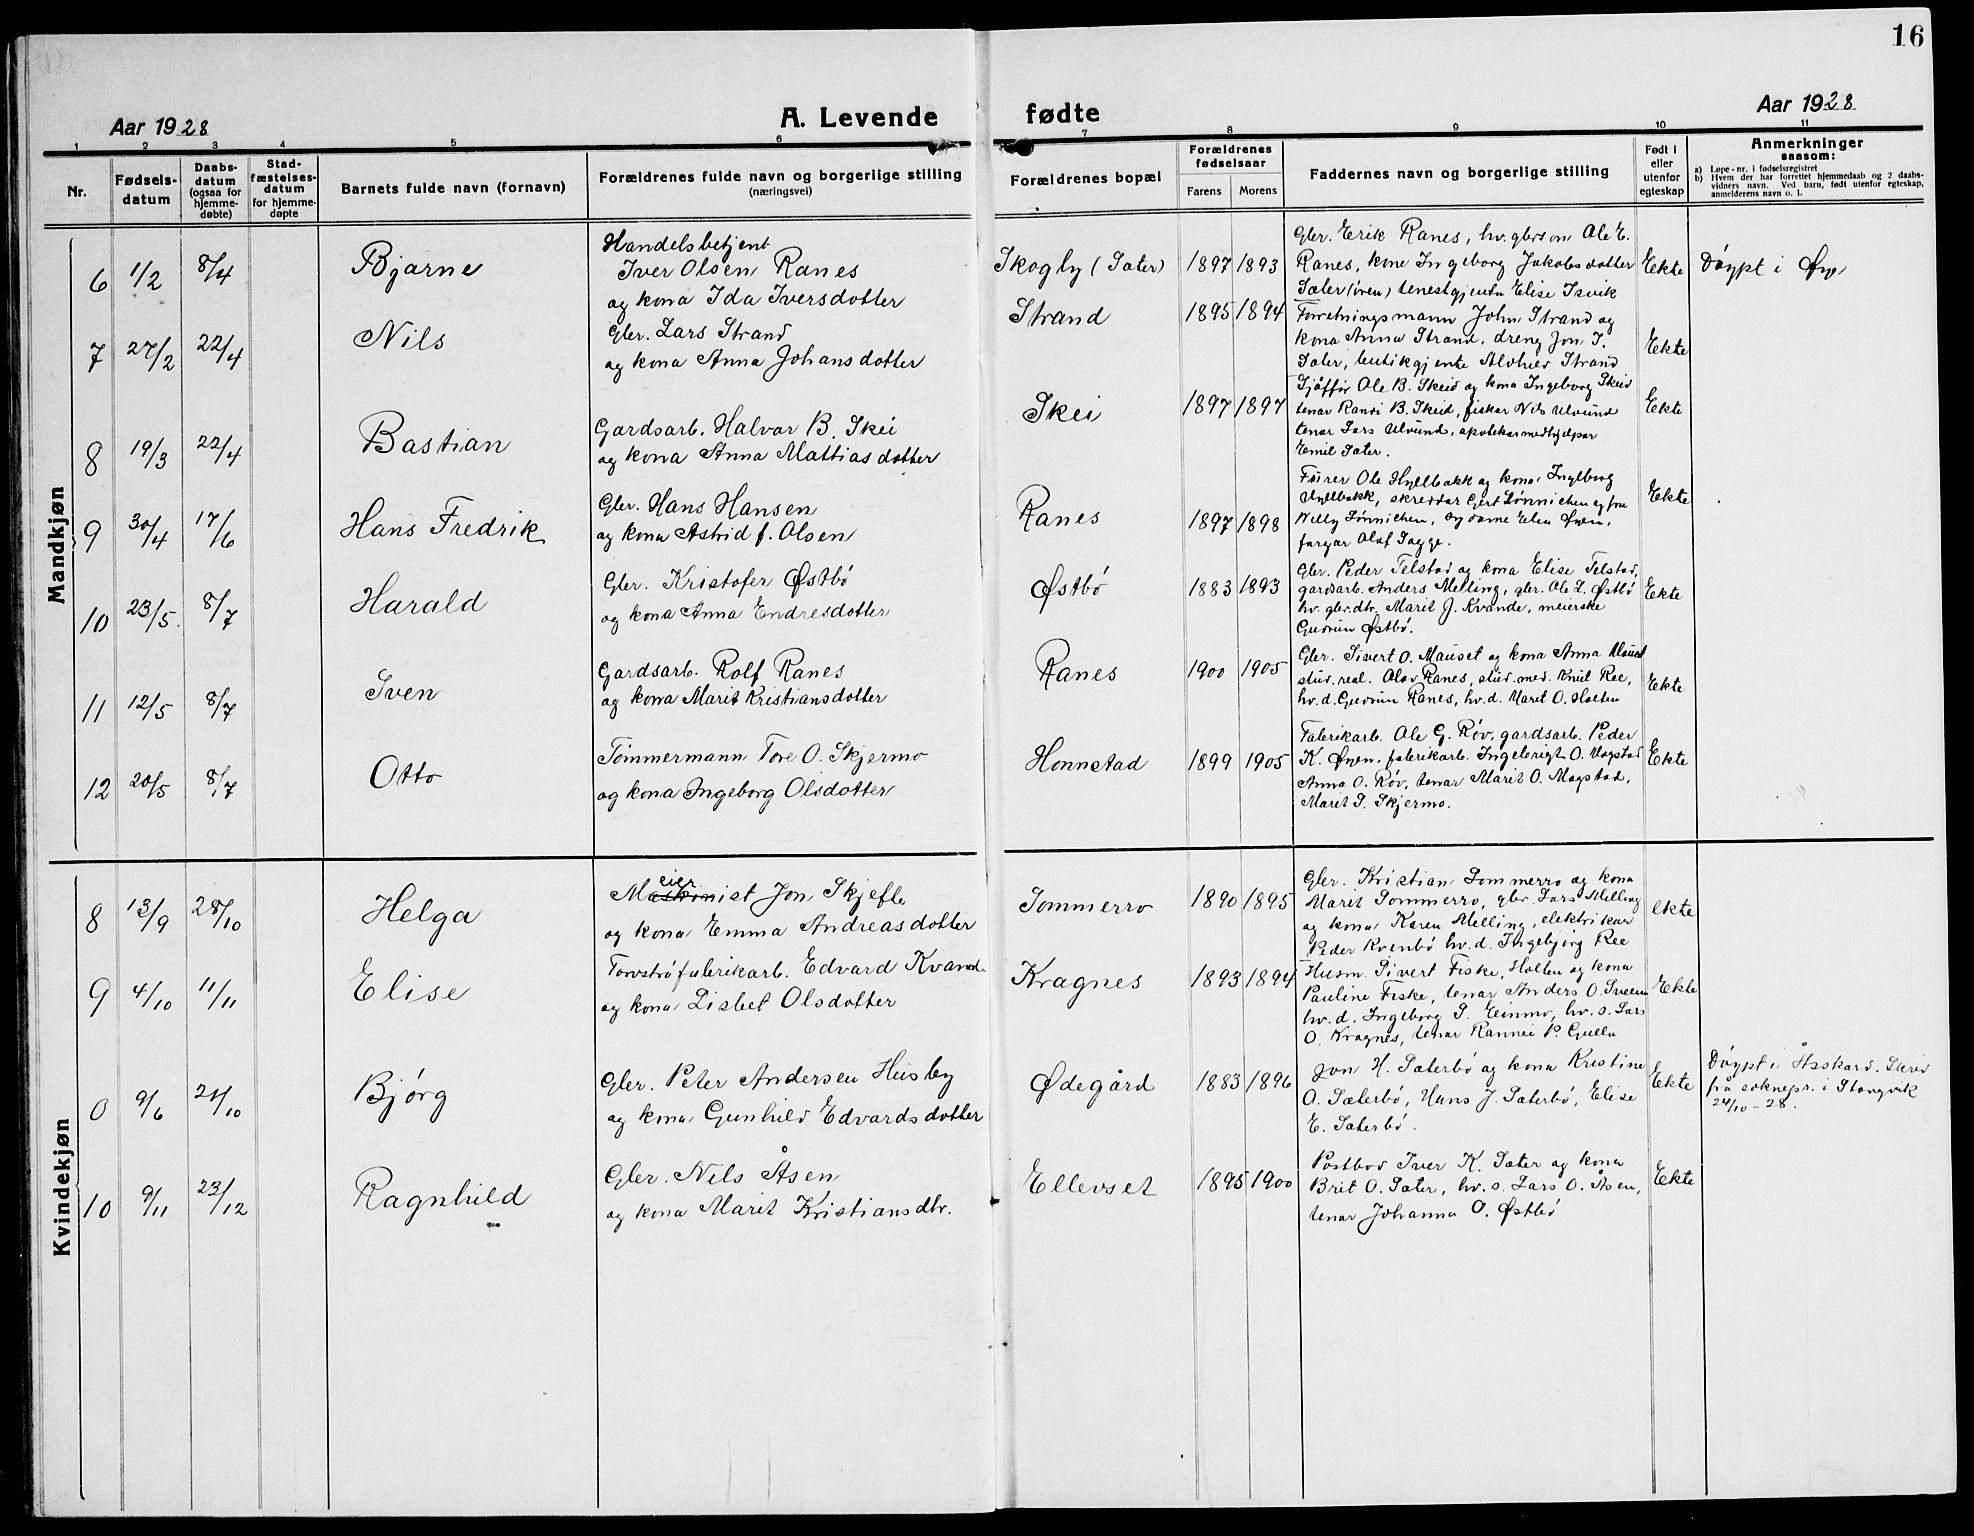 16
Aar 1928
A. Levende
fødte
Aar 1928
1 2 3 4 5 6 7 8 9 10 11
Nr.
Fødsels-
datum
Daabs-
datum
(ogsaa for
hjemme-
døbte)
Stad-
fæstelses-
datum
for hjemme-
døpte
Barnets fulde navn (fornavn)
Forældrenes fulde navn og borgerlige stilling
(næringsvei)
Forældrenes bopæl
Forældrenes
fødselsaar
Farens
Morens
Faddernes navn og borgerlige stilling
Født i
eller
utenfor
egteskap
Anmerkninger
saasom:
a) Løpe-nr. i fødselsregistret
b) Hvem der har forrettet hjemmedaab og 2 daabs-
vidners navn. Ved barn, født utenfor egteskap,
anmelderens navn o. l.
Mandkjøn
6 1/2 8/4 Bjarne
Handelsbetjent
Iver Olsen Ranes
og kona Ida Iversdotter
Skogly (Sæter) 1897 1893
Gbr. Erik Ranes, hv. gbrson Ole E.
Ranes, kone Ingeborg Jakobsdotter
Sæter (øren) tenestgjenta Elise Isvik
Ekte
Døypt i Øye
7 27/2 22/4 Nils
Gbr. Lars Strand
og kona Anna Johansdotter
Strand 1895 1894
Forretningsmann John Strand og
kona Anna Strand, dreng Jon I.
Sæter, butikgjente Alvhild Strand
Ekte
8 19/3 22/4 Bastian
Gardsarb. Halvar B. Skei
og kona Anna Mattiasdotter
Skei 1897 1897
Sjåffør Ole B. Skeid og kona Ingeborg Skeid
tenar Randi B. Skeid, fiskar Nils Ulvund
tenar Lars Ulvund, apotekarmedhjelpar
Emil Sæter.
Ekte
9 30/4 17/6 Hans Fredrik
Gbr. Hans Hansen
og kona Astrid f. Olsen
Ranes 1897 1898
Fører Ole Hyllbakk og kona Ingeborg
Hyllbakk, skreddar Gert Lønnichen og fru
Nelly Lønnichen, sydame Elen Øyen,
fargar Olaf Sagge.
Ekte
10 23/5. 8/7 Harald
Gbr. Kristofer Østbø
og kona Anna Endresdotter
Østbø 1883 1893
Gbr. Peder Telstad og kona Elise Telstad,
gardsarb. Anders Melling, gbr. Ole L. Østbø
hv. gbr.dtr. Marit J. Kvande, meierske
Gudrun Østbø.
Ekte
11 12/5 8/7 Sven
Gardsarb. Rolf Ranes
og kona Marit Kristiansdotter
Ranes 1900 1905
Gbr. Sivert O. Mauset og kona Anna Mauset
stud. real. Olav Ranes, stud. med. Knut Ree,
hv. d. Gudrun Ranes, hv. d. Marit O. Holten
Ekte
12 20/5 8/7 Otto
Tømmermann Tore O. Skjermo
og kona Ingeborg Olsdotter
Honnstad 1899 1905
Fabrikarb. Ole G. Røv, gardsarb. Peder
K. Øyen, fabrikarb. Ingebrigt O. Mogstad
Anna O. Røv, tenar Marit O. Mogstad,
Marit S. Skjermo.
Ekte
Kvindekjøn
8 13/9 28/10 Helga
Meierist Jon Skjefte
og kona Emma Andreasdotter
Sommerro 1890 1895
Gbr. Kristian Sommerro og kona
Marit Sommerro, gbr. Lars Melling
og kona Karen Melling, elektrikar
Peder Kvenbø hv. d. Ingebjørg Ree
ekte
9 4/10 11/11 Elise
Torvstrøfabrikarb. Edvard Kvande
og kona Lisbet Olsdotter
Kragnes 1893 1894
Husm. Sivert Fiske, Holten og kona
Pauline Fiske, tenar Anders O. Sveen
hv. d. Ingeborg S. Einmo, hv. s. Lars
O. Kragnes, tenar Rannei P. Gulla
Ekte
0 9/6 21/10 Bjørg
Gbr. Peter Andersen Husby
og kona Gunhild Edvardsdotter
Ødegård 1883 1896
Jon H. Sæterbø og kona Kristine
O. Sæterbø, Hans J. Sæterbø, Elise
E. Sæterbø.
Ekte
Døypt i Åsskard.
frå soknepr. i Stangvik
24/10-28.
10 9/11 23/12 Ragnhild
Gbr. Nils Åsen
og kona Marit Kristiansdtr.
Ellevset 1895 1900
Postbud Iver K. Sæter og kona
Brit O. Sæter, hv. s. Lars O. Åsen,
tenar Johanna O. Østbø
Ekte